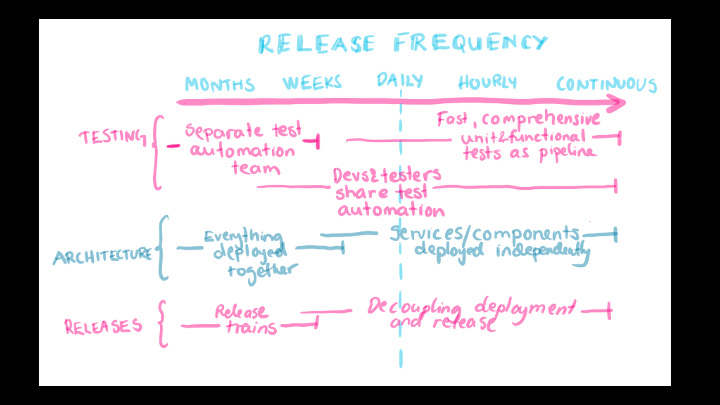 RELEASE FREQUENCY
MONTHS WEEKS DAILY HOURLY CONTINUOUS
TESTING
Separate test
automation
team
Fast, comprehensive
unit&functional
tests as pipeline
Devs&testers
share test
automation
ARCHITECTURE
Everything
deployed
together
Services/components
deployed independently
RELEASES
Release
trains
Decoupling deployment
and release